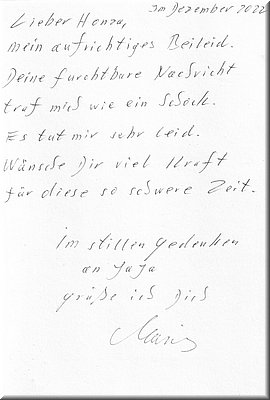 Im Dezember 2022
Lieber Honza,
mein aufrichtiges Beileid.
Deine furchtbare Nachricht
traf mich wie ein Schock.
Es tut mir sehr leid.
Wünsche Dir viel Kraft
für diese so schwere Zeit.
Im stillen Gedenken
an JaJa
grüße ich Dich